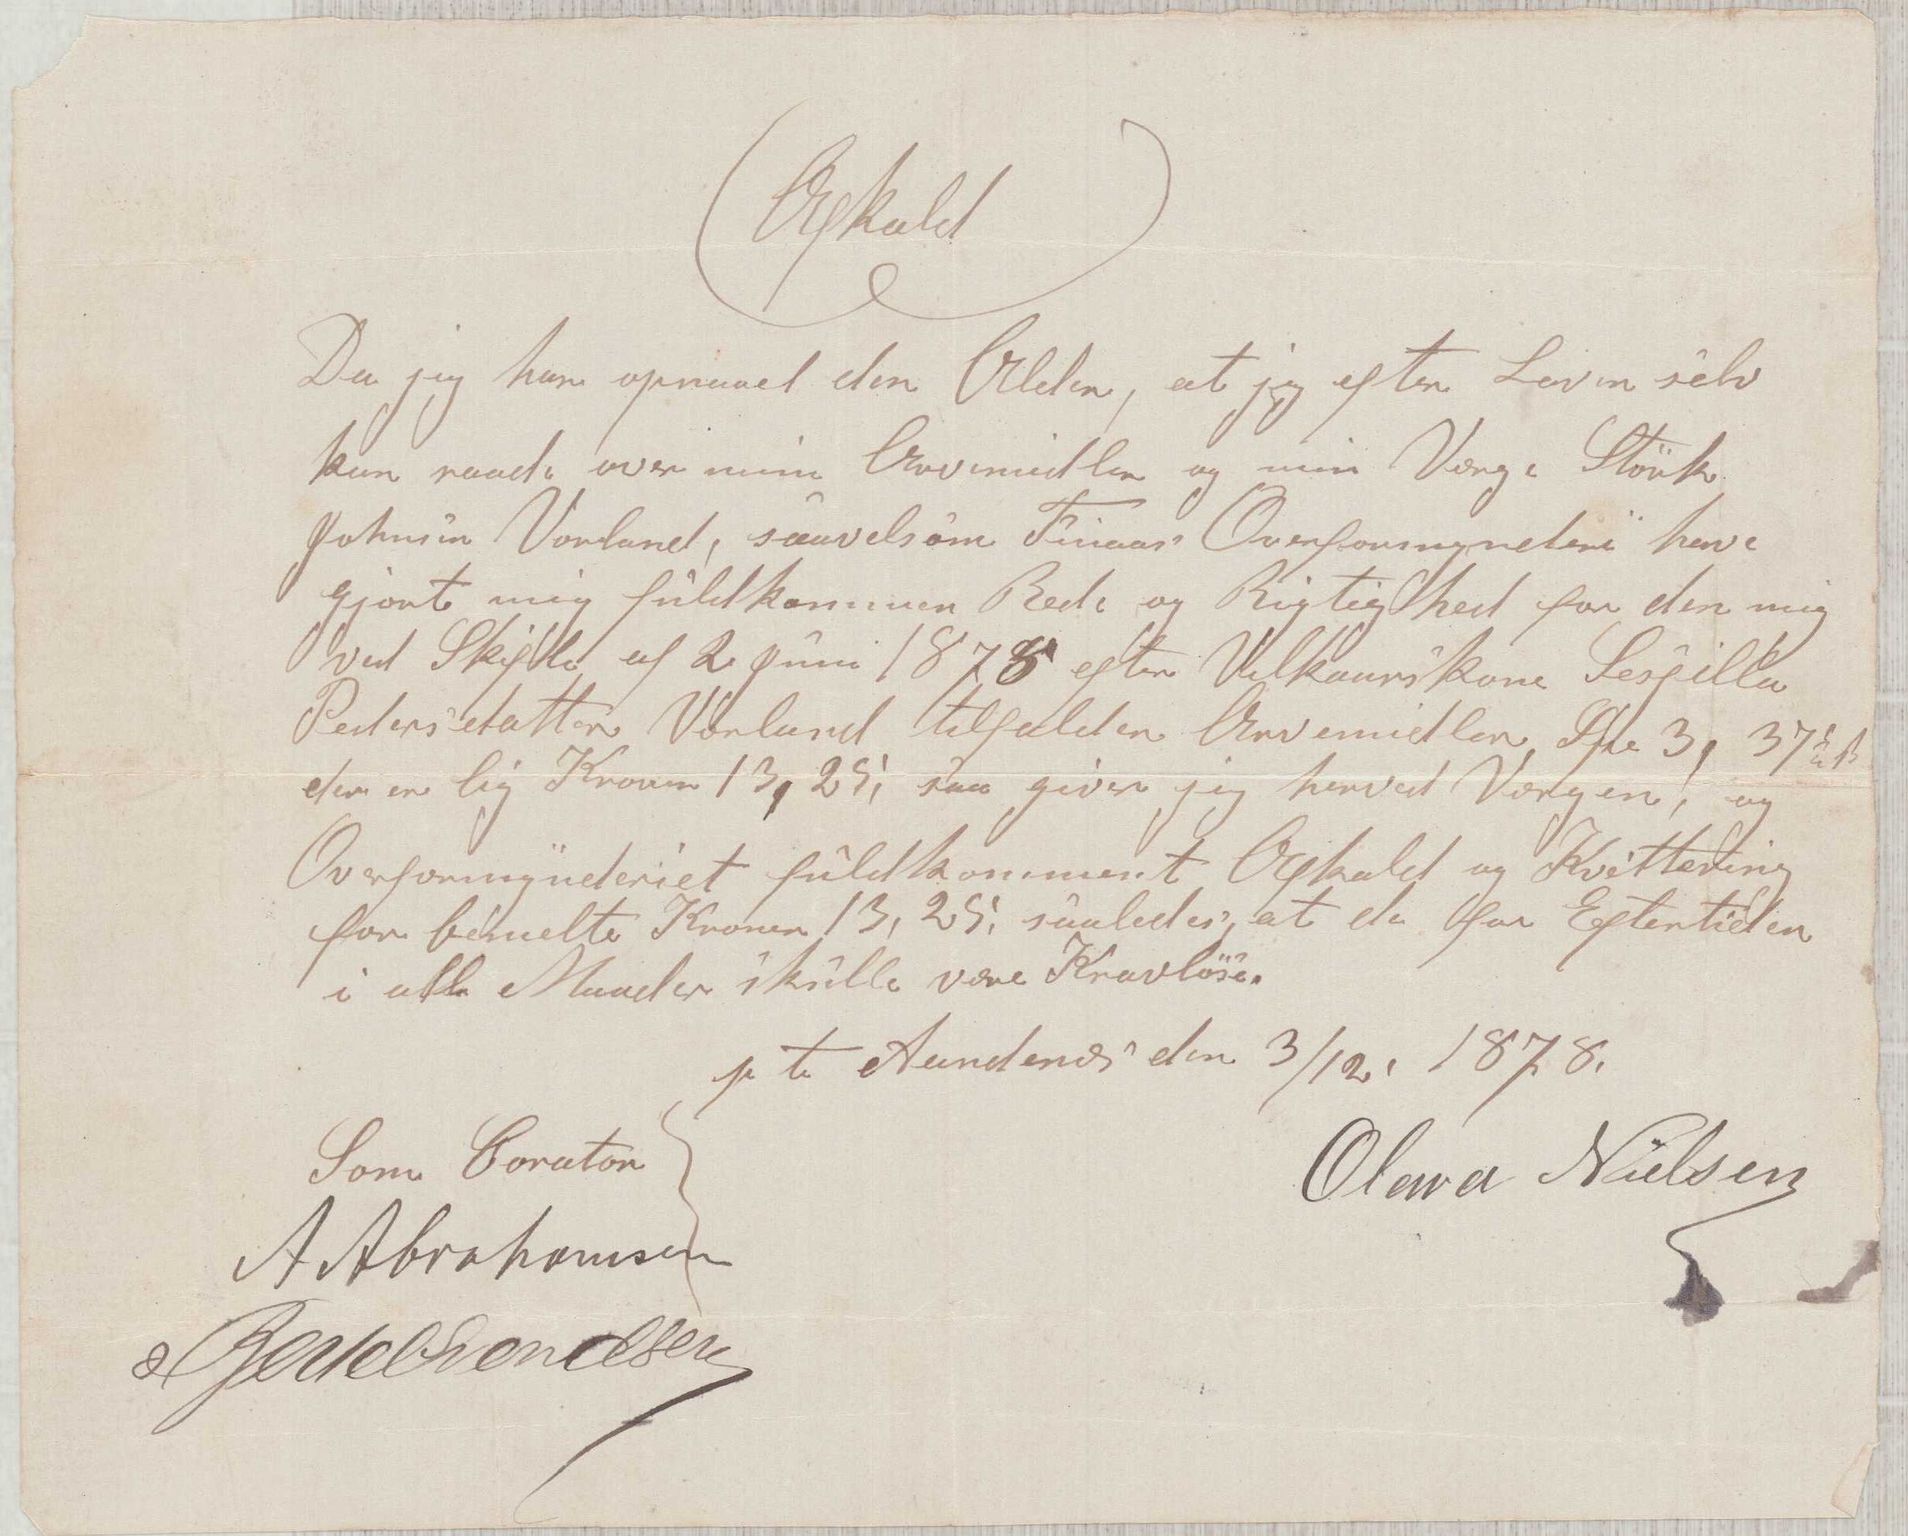 Afkald
Da jeg har opnaaet den Alder, at jeg efter Loven selv
kan raade over mine Arvemidler og min Værge Störk
Johnsen Vorland, saavelsom Finaas Overformynderi have
gjort mig fuldkommen Rede og Rigtighed for den mig
ved Skifte af 2 Juni 1878 efter Vilkaarskone Sesfilla
Pedersdatter Vorland tilfalden Arvemidler, Spe 3, 37
der er lig Kroner 13,25, saa giver jeg herved Værgen, og
Overformynderiet fuldkomment Afkald og Kvittering
for bemelte Kroner 13,25, saaledes, at de for Eftertiden
i alle Maader skulle være Kravlöse.
p t Aandenes den 3/12. 1878.
Som Corator
Olava Nielsen
A Abrahamsen
Bertel Svendsen